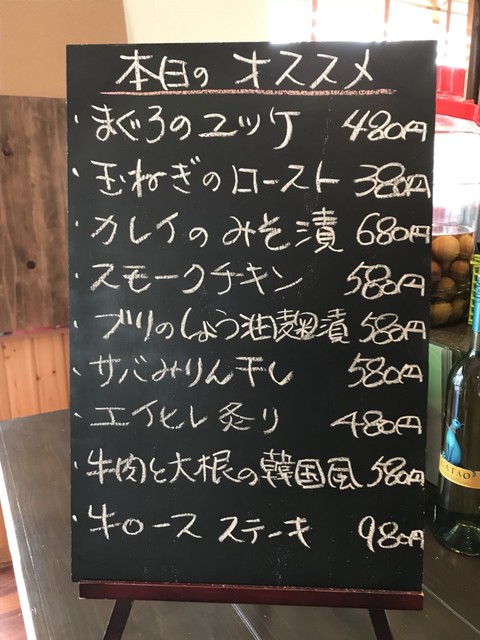 本日の オススメ
・まぐろのユッケ 480円
・玉ねぎのロースト 380円
・カレイのみそ漬 680円
・スモークチキン 580円
・ブリのしょう油麹漬 580円
・サバみりん干し 580円
・エイヒレ炙り 480円
・牛肉と大根の韓国風 580円
・牛ロース ステーキ 980円